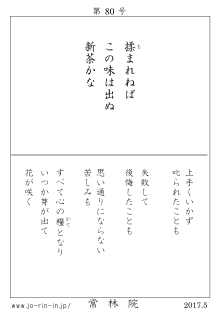 第 80 号
揉まれねば
この味は出ぬ
新茶かな
上手くいかず
叱られたことも
失敗して
後悔したことも
思い通りにならない
苦しみも
すべて心の糧となり
いつか芽が出て
花が咲く
www.jo-rin-in.jp/
常林院
2017.5